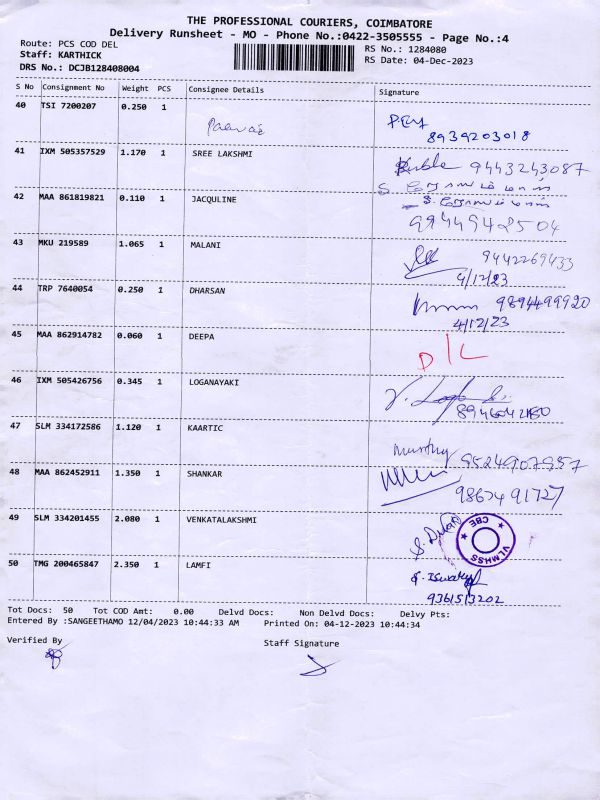 THE PROFESSIONAL COURIERS, COIMBATORE
Delivery Runsheet - MO - Phone No.:0422-3505555 - Page No.:4
Route: PCS COD DEL
RS No.: 1284080
Staff: KARTHICK
RS Date: 04-Dec-2023
DRS No.: DCJB128408004
S No Consignment No Weight PCS Consignee Details Signature
40 TSI 7200207 0.250 1
8939203018
41 IXM 505357529 1.170 1 SREE LAKSHMI
9443243087
42 MAA 861819821 0.110 1 JACQULINE
9944942504
43 MKU 219589 1.065 1 MALANI
9442269433
4/12/23
44 TRP 7640054 0.250 1 DHARSAN
9894499920
4/12/23
45 MAA 862914782 0.060 1 DEEPA
D/L
46 IXM 505426756 0.345 1 LOGANAYAKI
47 SLM 334172586 1.120 1 KAARTIC
Murthy 9524907957
48 MAA 862452911 1.350 1 SHANKAR
9867491727
49 SLM 334201455 2.080 1 VENKATALAKSHMI
VLMHSS CBE
50 TMG 200465847 2.350 1 LAMFI
9361513202
Tot Docs: 50 Tot COD Amt: 0.00 Delvd Docs: Non Delvd Docs: Delvy Pts:
Entered By :SANGEETHAMO 12/04/2023 10:44:33 AM Printed On: 04-12-2023 10:44:34
Verified By Staff Signature